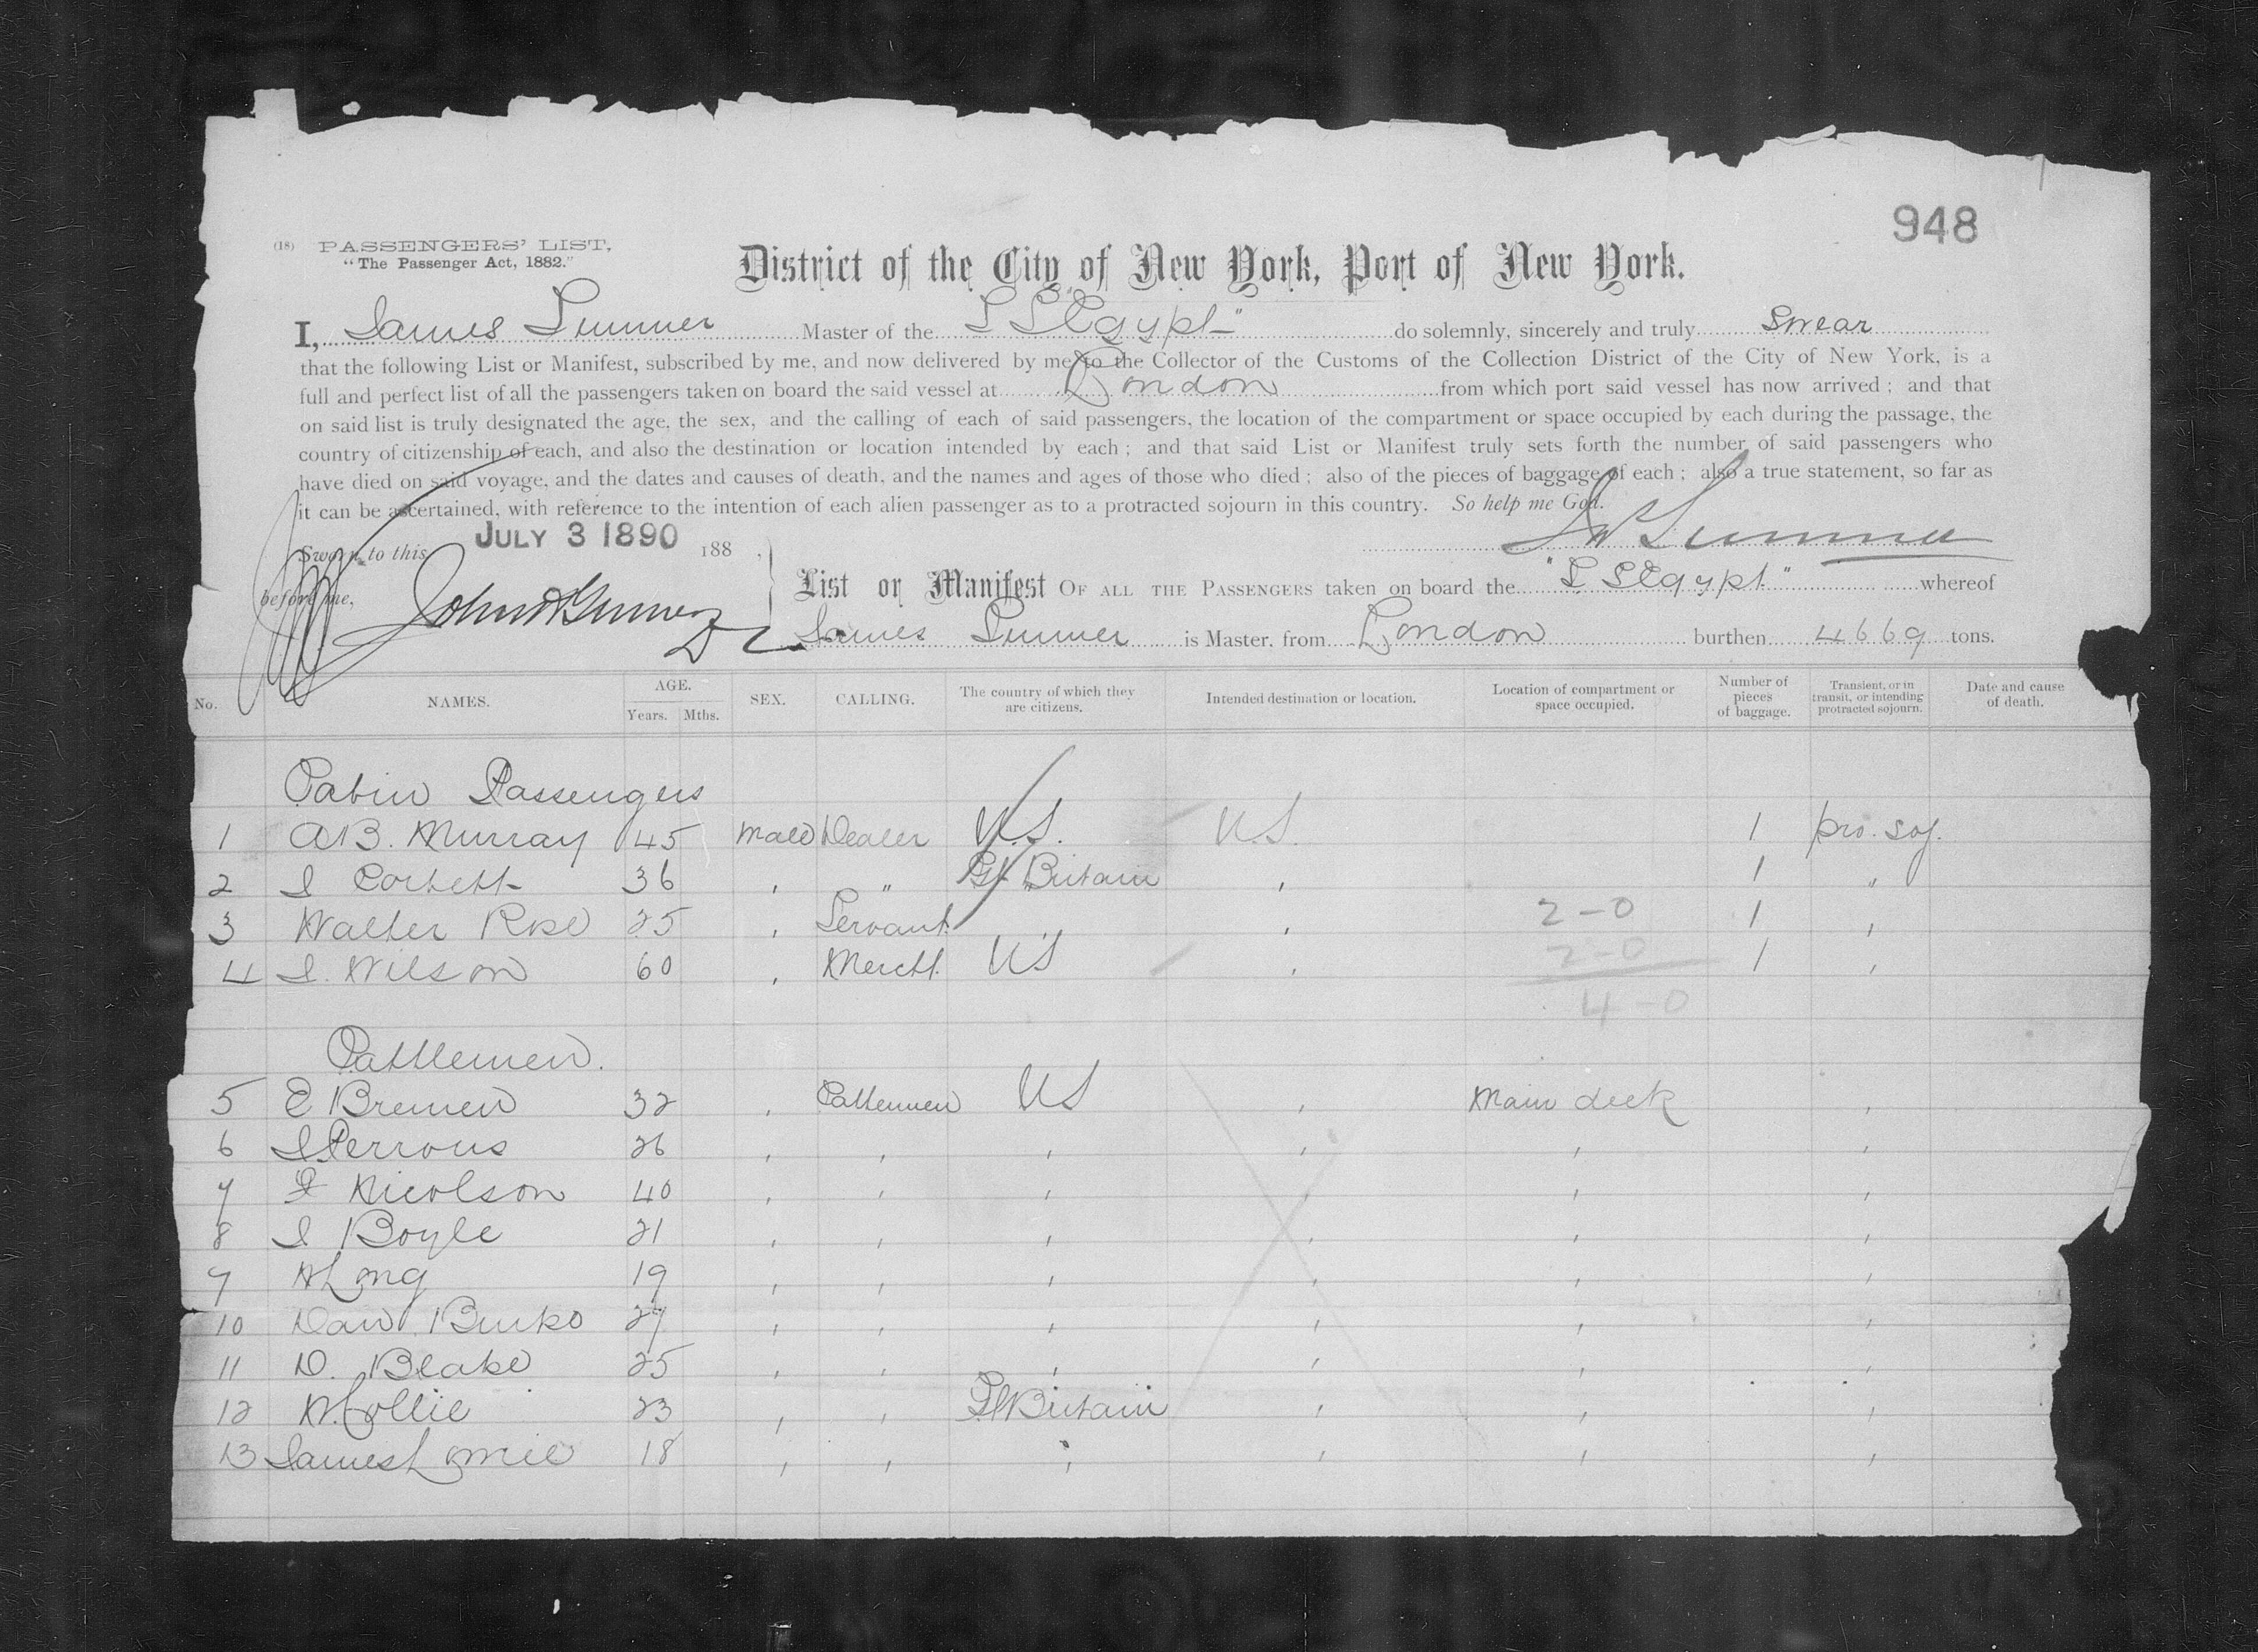 948
(18) PASSENGERS' LIST,
"The Passenger Act, 1882."
District of the City of New York, Port of New York.
I, James Sumner Master of the S S Egypt" do solemnly, sincerely and truly Swear
that the following List or Manifest, subscribed by me, and now delivered by me to the Collector of the Customs of the Collection District of the City of New York, is a
full and perfect list of all the passengers taken on board the said vessel at London from which port said vessel has now arrived; and that
on said list is truly designated the age, the sex, and the calling of each of said passengers, the location of the compartment or space occupied by each during the passage, the
country of citizenship of each, and also the destination or location intended by each; and that said List or Manifest truly sets forth the number of said passengers who
have died on said voyage, and the dates and causes of death, and the names and ages of those who died; also of the pieces of baggage of each; also a true statement, so far as
it can be ascertained, with reference to the intention of each alien passenger as to a protracted sojourn in this country. So help me God.
Sworn to this JULY 3 1890 188 , Js Sumner
before me,
List or Manifest OF ALL THE PASSENGERS taken on board the "S S Egypt" whereof
James Sumner is Master, from London burthen 4669 tons.
No. NAMES. AGE. Years. Mths. SEX. CALLING. The country of which they are citizens. Intended destination or location. Location of compartment or space occupied. Number of pieces of baggage. Transient, or in transit, or intending protracted sojourn. Date and cause of death.
Cabin Passengers
1 A B. Murray 45 Male Dealer U.S. U.S. 1 pro. soj.
2 J Corbett 36 , " Gt Britain , 1 "
3 Walter Rose 25 , Servant , , 2-0 1 ,
4 J. Wilson 60 , Mercht. US , 2-0 1 ,
4-0
Cattlemen.
5 E Bremen 32 , Cattlemen US , Main deck ,
6 J Perrous 26 , , , , , ,
7 J Nicolson 40 , , , , , ,
8 J Boyle 21 , , , , , ,
9 W Long 19 , , , , , ,
10 Davd. Burke 27 , , , , , ,
11 D. Blake 25 , , , , , ,
12 W. Collie 23 , , Gt Britain , , ,
13 James Lorrie 18 , , , , , ,